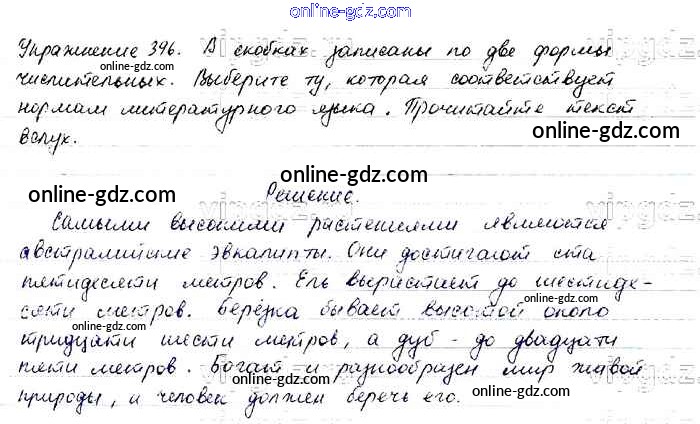 online-gdz.com
Упражнение 396. В скобках записаны по две формы
числительных. Выберите ту, которая соответствует
нормам литературного языка. Прочитайте текст
вслух.
Решение.
Самыми высокими растениями являются
австралийские эвкалипты. Они достигают ста
пятидесяти метров. Ель вырастает до шестиде-
сяти метров. Берёзка бывает высотой около
тридцати шести метров, а дуб - до двадцати
пяти метров. Богат и разнообразен мир живой
природы, и человек должен беречь его.
online-gdz.com
online-gdz.com
online-gdz.com
online-gdz.com
online-gdz.com
online-gdz.com
online-gdz.com
online-gdz.com
online-gdz.com
online-gdz.com